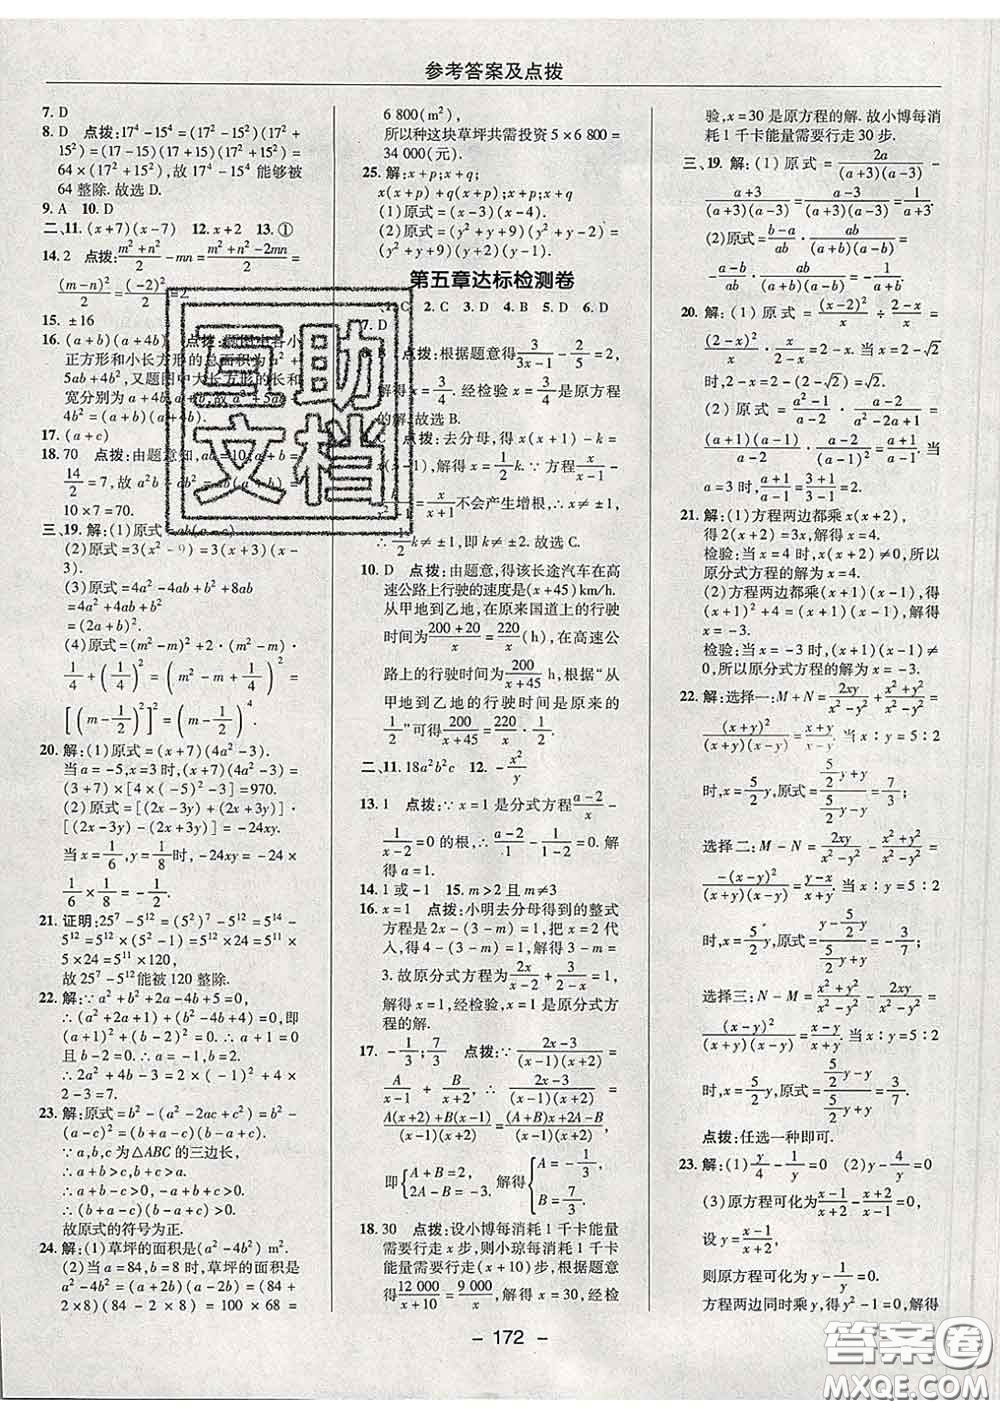 参考答案及点拨
7. D
8. D 点拨:17⁴-15⁴=(17²-15²)(17²+
15²)=(17-15)(17+15)(17²+15²)=
64×(17²+15²),故 17⁴-15⁴ 能够被
64 整除. 故选 D.
9. A 10. D
二、11. (x+7)(x-7) 12. x+2 13. ①
14. 2 点拨:(m²+n²)/2-mn=(m²+n²-2mn)/2=
(m-n)²/2=(-2)²/2=2.
15. ±16
16. (a+b)(a+4b) 点拨:题图中各小
正方形和小长方形的总面积为 a²+
5ab+4b²,又题图中大长方形的长和
宽分别为 a+4b,a+b,故 a²+5ab+
4b²=(a+b)(a+4b).
17. (a+c)
18. 70 点拨:由题意知,ab=10,a+b=
14/2=7,故 a²b+ab²=ab(a+b)=
10×7=70.
三、19. 解:(1)原式=ab(a-c).
(2)原式=3(x²-9)=3(x+3)(x-
3).
(3)原式=4a²-4ab+b²+8ab
=4a²+4ab+b²
=(2a+b)².
(4)原式=(m²-m)²+2·(m²-m)·
1/4+(1/4)²=(m²-m+1/4)²=
[(m-1/2)²]²=(m-1/2)⁴.
20. 解:(1)原式=(x+7)(4a²-3).
当 a=-5,x=3 时,(x+7)(4a²-3)=
(3+7)×[4×(-5)²-3]=970.
(2)原式=[(2x-3y)+(2x+3y)]·
[(2x-3y)-(2x+3y)]=-24xy.
当 x=1/6,y=1/8时,-24xy=-24×
1/6×1/8=-1/2.
21. 证明:25⁷-5¹²=(5²)⁷-5¹²=5¹⁴-
5¹²=5¹²×(5²-1)=5¹²×24=5¹¹×
5×24=5¹¹×120,
故 25⁷-5¹²能被 120 整除.
22. 解:∵a²+b²+2a-4b+5=0,
∴(a²+2a+1)+(b²-4b+4)=0,即
(a+1)²+(b-2)²=0. ∴a+1=0
且 b-2=0. ∴a=-1,b=2.
∴2a²+4b-3=2×(-1)²+4×2
-3=7.
23. 解:原式=b²-(a²-2ac+c²)=b²-
(a-c)²=(b+a-c)(b-a+c).
∵a,b,c 为△ABC 的三边长,
∴a+b>c,b+c>a.
∴a+b-c>0,-a+b+c>0.
∴(b+a-c)(b-a+c)>0.
故原式的符号为正.
24. 解:(1)草坪的面积是(a²-4b²) m².
(2)当 a=84,b=8 时,草坪的面积是
a²-4b²=(a+2b)(a-2b)=(84+
2×8)(84-2×8)=100×68=
6 800(m²),
所以种这块草坪共需投资 5×6 800=
34 000(元).
25. 解:x+p;x+q;
x(x+p)+q(x+p);(x+p)(x+q)
(1)原式=(x-3)(x-4).
(2)原式=(y²+y+9)(y²+y-2)=
(y²+y+9)(y+2)(y-1).
第五章达标检测卷
一、1. C 2. C 3. D 4. B 5. D 6. D
7. D
8. B 点拨:根据题意得3/(3x-1)-2/5=2,
解得 x=3/4. 经检验 x=3/4是原方程
的解. 故选 B.
9. C 点拨:去分母,得 x(x+1)-k=
x(x-1),解得 x=1/2k. ∵方程x/(x-1)-
k/(x²-1)=x/(x+1)不会产生增根,∴x≠±1,
∴1/2k≠±1,即 k≠±2. 故选 C.
10. D 点拨:由题意,得该长途汽车在高
速公路上行驶的速度是(x+45)km/h.
从甲地到乙地,在原来国道上的行驶
时间为(200+20)/x=220/x(h),在高速公
路上的行驶时间为200/(x+45) h,根据“从
甲地到乙地的行驶时间是原来的
1/2”可得200/(x+45)=220/x·1/2.
二、11. 18a²b²c 12. -x²/y
13. 1 点拨:∵x=1 是分式方程(a-2)/x-
1/(x-2)=0 的根,∴(a-2)/1-1/(1-2)=0. 解
得 a=1.
14. 1 或-1 15. m>2 且 m≠3
16. x=1 点拨:小明去分母得到的整式
方程是 2x-(3-m)=1,把 x=2 代
入,得 4-(3-m)=1,解得 3-m=
3. 故原分式方程为2x/(x-2)+3/(2-x)=1,
解得 x=1,经检验,x=1 是原分式方
程的解.
17. -1/3;7/3 点拨:∵(2x-3)/((x-1)(x+2))=
A/(x-1)+B/(x+2)=(2x-3)/((x-1)(x+2)),∴
(A(x+2)+B(x-1))/((x-1)(x+2))=((A+B)x+2A-B)/((x-1)(x+2)),
即{A+B=2, 2A-B=-3, 解得{A=-1/3, B=7/3.
18. 30 点拨:设小博每消耗 1 千卡能量
需要行走 x 步,则小琼每消耗 1 千卡
能量需要行走(x+10)步. 根据题意
得12 000/(x+10)=9 000/x,解得 x=30,经检
验,x=30 是原方程的解. 故小博每消
耗 1 千卡能量需要行走 30 步.
三、19. 解:(1)原式=2a/((a+3)(a-3))-
(a+3)/((a+3)(a-3))=(a-3)/((a+3)(a-3))=1/(a+3).
(2)原式=(b-a)/ab·ab/((a+b)(a-b))=
-(a-b)/ab·ab/((a+b)(a-b))=-1/(a+b).
20. 解:(1)原式=(x-2)²/x÷(2-x)/x=
(2-x)²/x·x/(2-x)=2-x. 当 x=2-√2
时,2-x=2-(2-√2)=√2.
(2)原式=(a²-1)/(a-2)·(a-2)/(a²-2a+1)=
(a+1)(a-1)/(a-2)·(a-2)/(a-1)²=(a+1)/(a-1). 当
a=3 时,(a+1)/(a-1)=(3+1)/(3-1)=2.
21. 解:(1)方程两边都乘 x(x+2),
得 2(x+2)=3x,解得 x=4.
检验:当 x=4 时,x(x+2)≠0,所以
原分式方程的解为 x=4.
(2)方程两边都乘(x+1)(x-1),得
(x+1)²+4=(x+1)(x-1),解得
x=-3.
检验:当 x=-3 时,(x+1)(x-1)≠
0,所以原分式方程的解为 x=-3.
22. 解:选择一:M+N=2xy/(x²-y²)+(x²+y²)/(x²-y²)=
(x+y)²/((x+y)(x-y))=(x+y)/(x-y). 当 x∶y=5∶2
时,x=5/2y,原式=(5/2y+y)/(5/2y-y)=7/3;
选择二:M-N=2xy/(x²-y²)-(x²+y²)/(x²-y²)=
-(x-y)²/((x+y)(x-y))=(y-x)/(x+y). 当 x∶y=5∶2
时,x=5/2y,原式=(y-5/2y)/(5/2y+y)=-3/7;
选择三:N-M=(x²+y²)/(x²-y²)-2xy/(x²-y²)=
(x-y)²/((x+y)(x-y))=(x-y)/(x+y). 当 x∶y=5∶2
时,x=5/2y,原式=(5/2y-y)/(5/2y+y)=3/7.
点拨:任选一种即可.
23. 解:(1)y/4-1/y=0 (2)y-4/y=0
(3)原方程可化为(x-1)/(x+2)-(x+2)/(x-1)=0,
设 y=(x-1)/(x+2),
则原方程可化为 y-1/y=0.
方程两边同时乘 y,得 y²-1=0,解得
- 172 -
互助
文档
答案卷
MXQE.COM